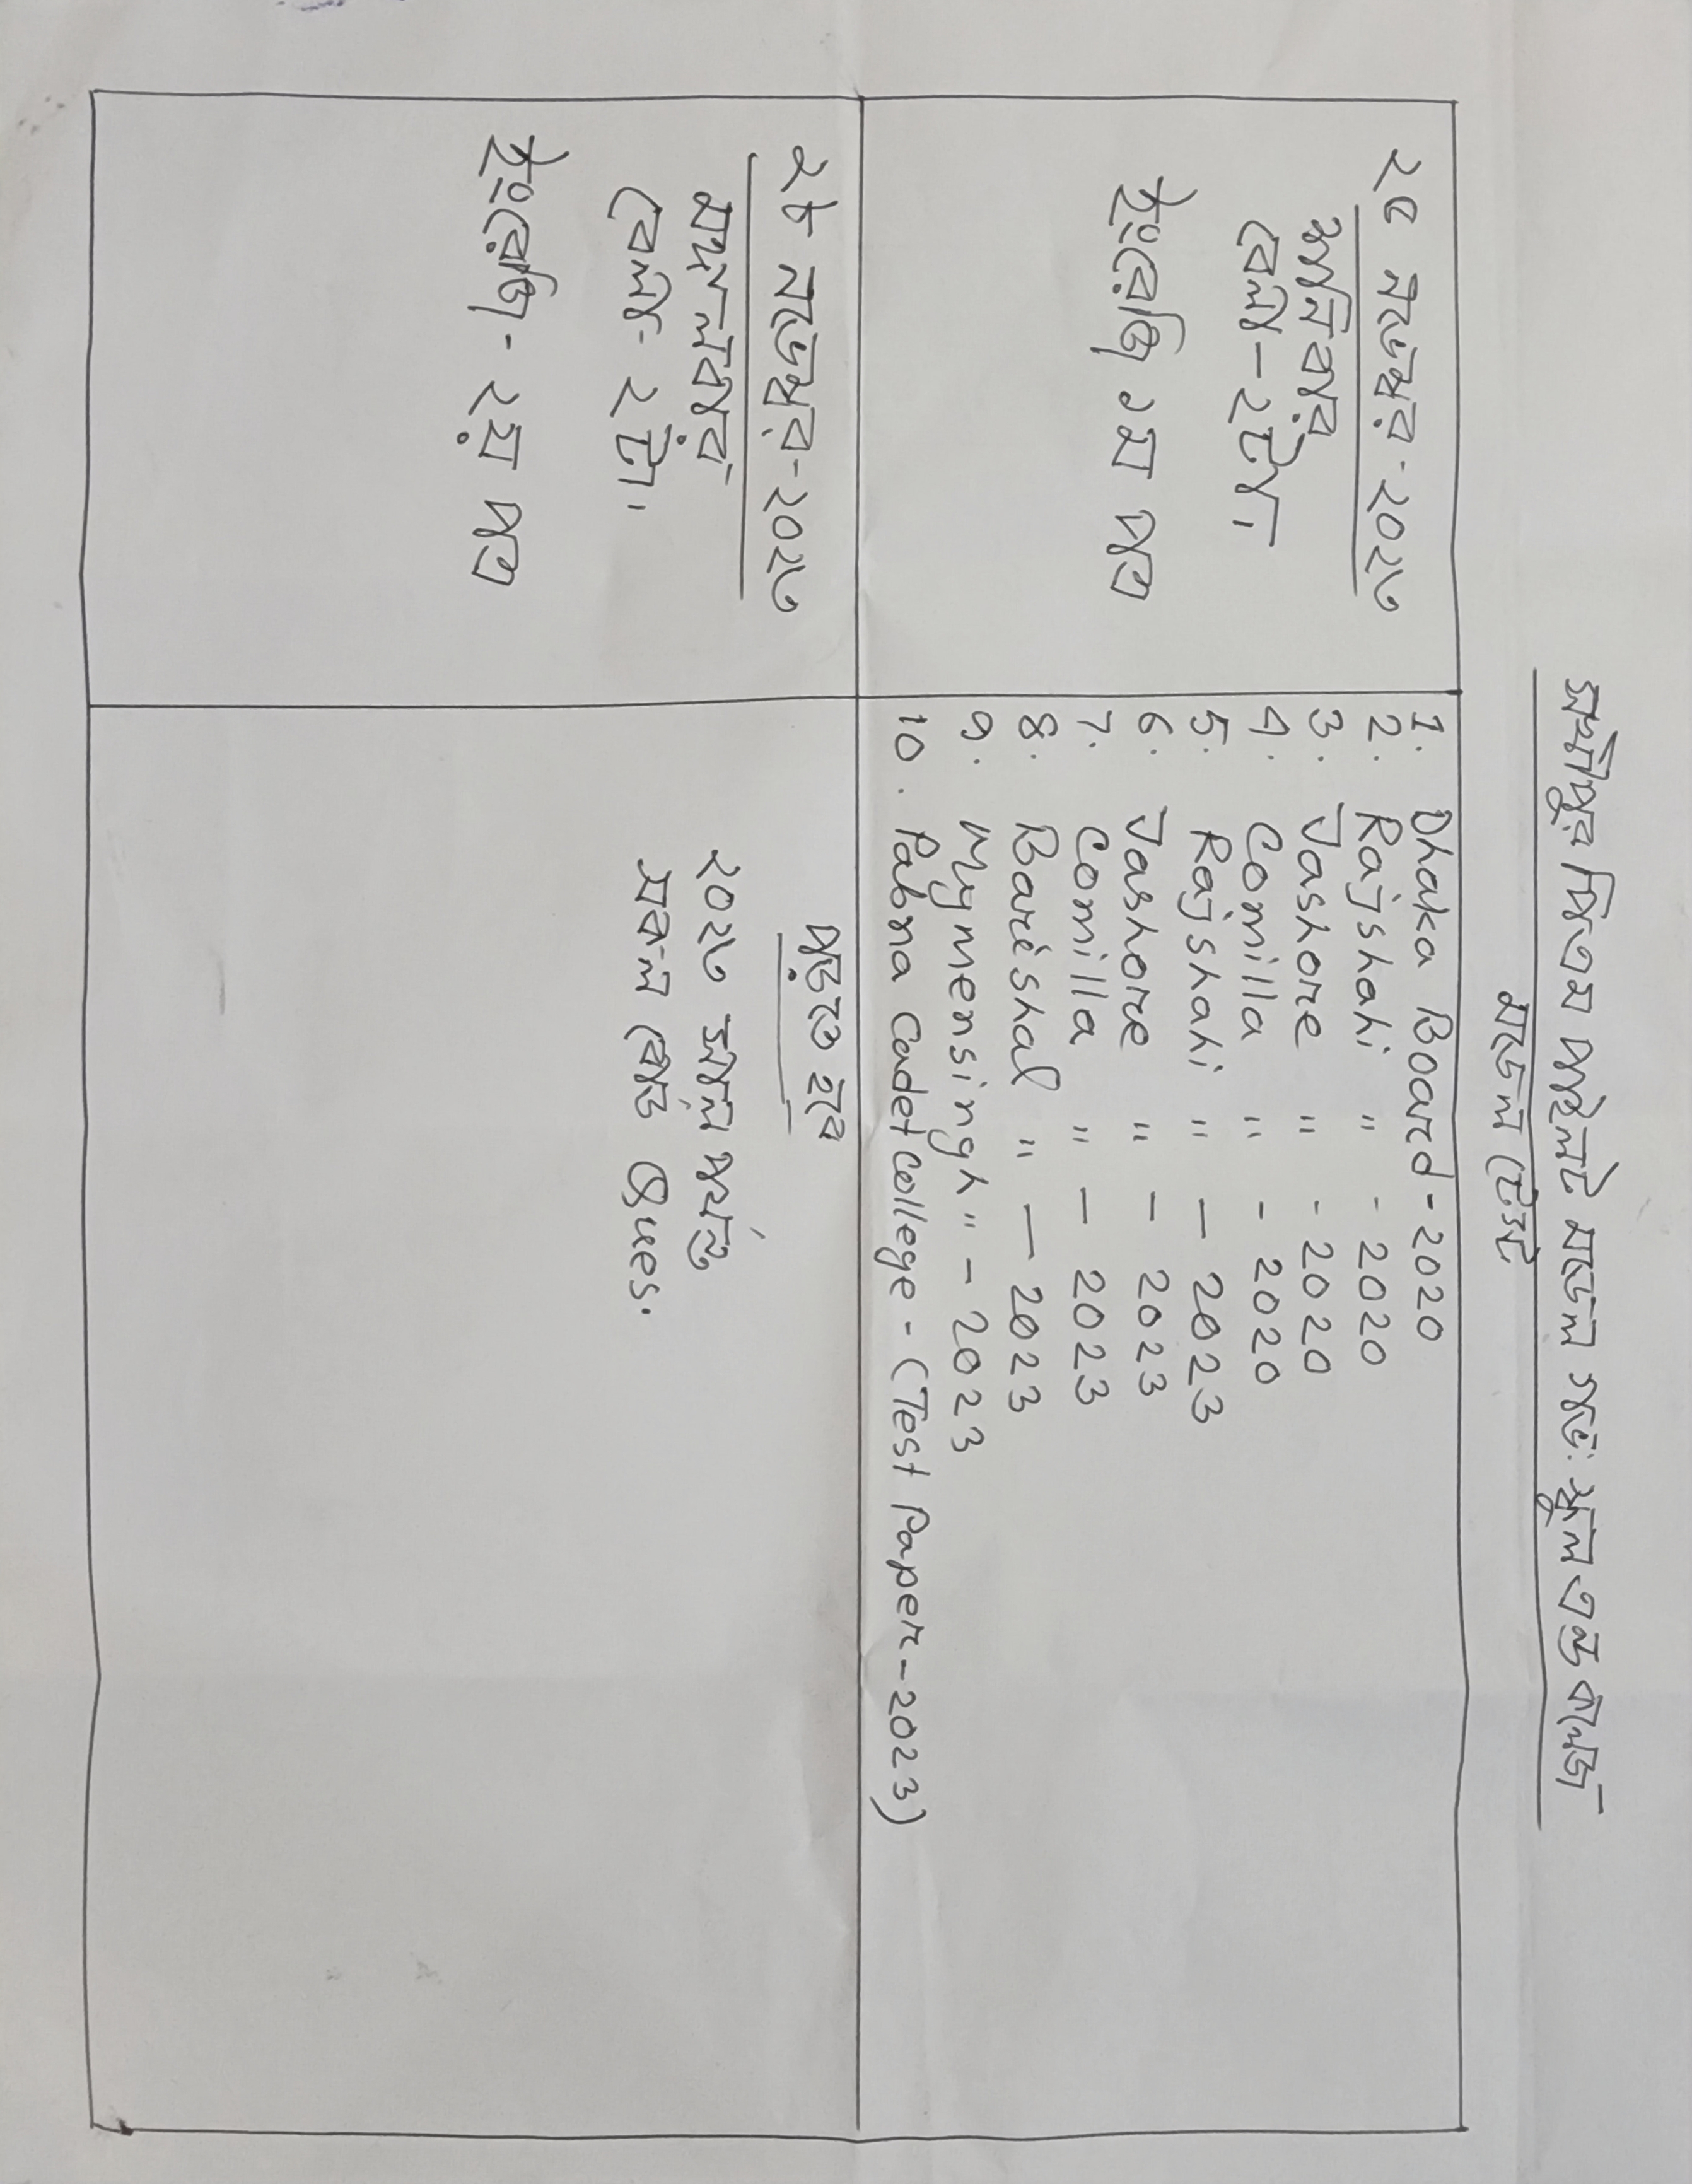 মোহাম্মদপুর পাইলট মডেল গভঃ স্কুল এন্ড কলেজ
মডেল টেস্ট
২৫ নভেম্বর-২০২৩
শনিবার
বেলা - ২টা।
ইংরেজি ১ম পত্র
1. Dhaka Board - 2020
2. Rajshahi " - 2020
3. Jashore " - 2020
4. Comilla " - 2020
5. Rajshahi " - 2023
6. Jashore " - 2023
7. Comilla " - 2023
8. Barishal " - 2023
9. Mymensingh " - 2023
10. Pabna Cadet college - (Test Paper-2023)
২৮ নভেম্বর-২০২৩
মঙ্গলবার
বেলা - ২ টা।
ইংরেজি - ২য় পত্র
পড়তে হবে
২০২৩ সালের
সকল বোর্ড Ques.